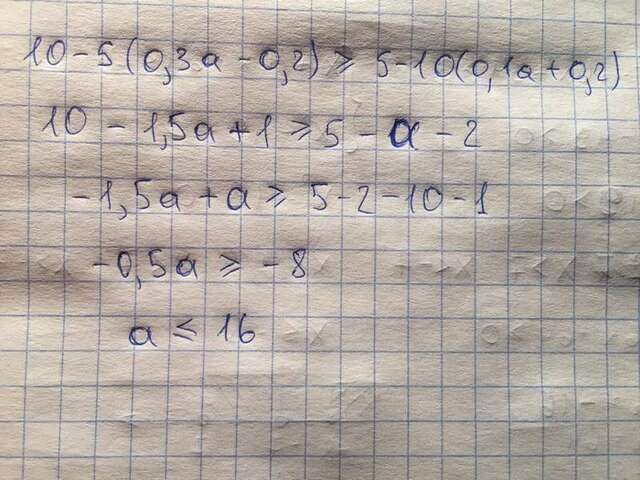 10 - 5(0,3a - 0,2) ≥ 5 - 10(0,1a + 0,2)
10 - 1,5a + 1 ≥ 5 - a - 2
-1,5a + a ≥ 5 - 2 - 10 - 1
-0,5a ≥ -8
a ≤ 16